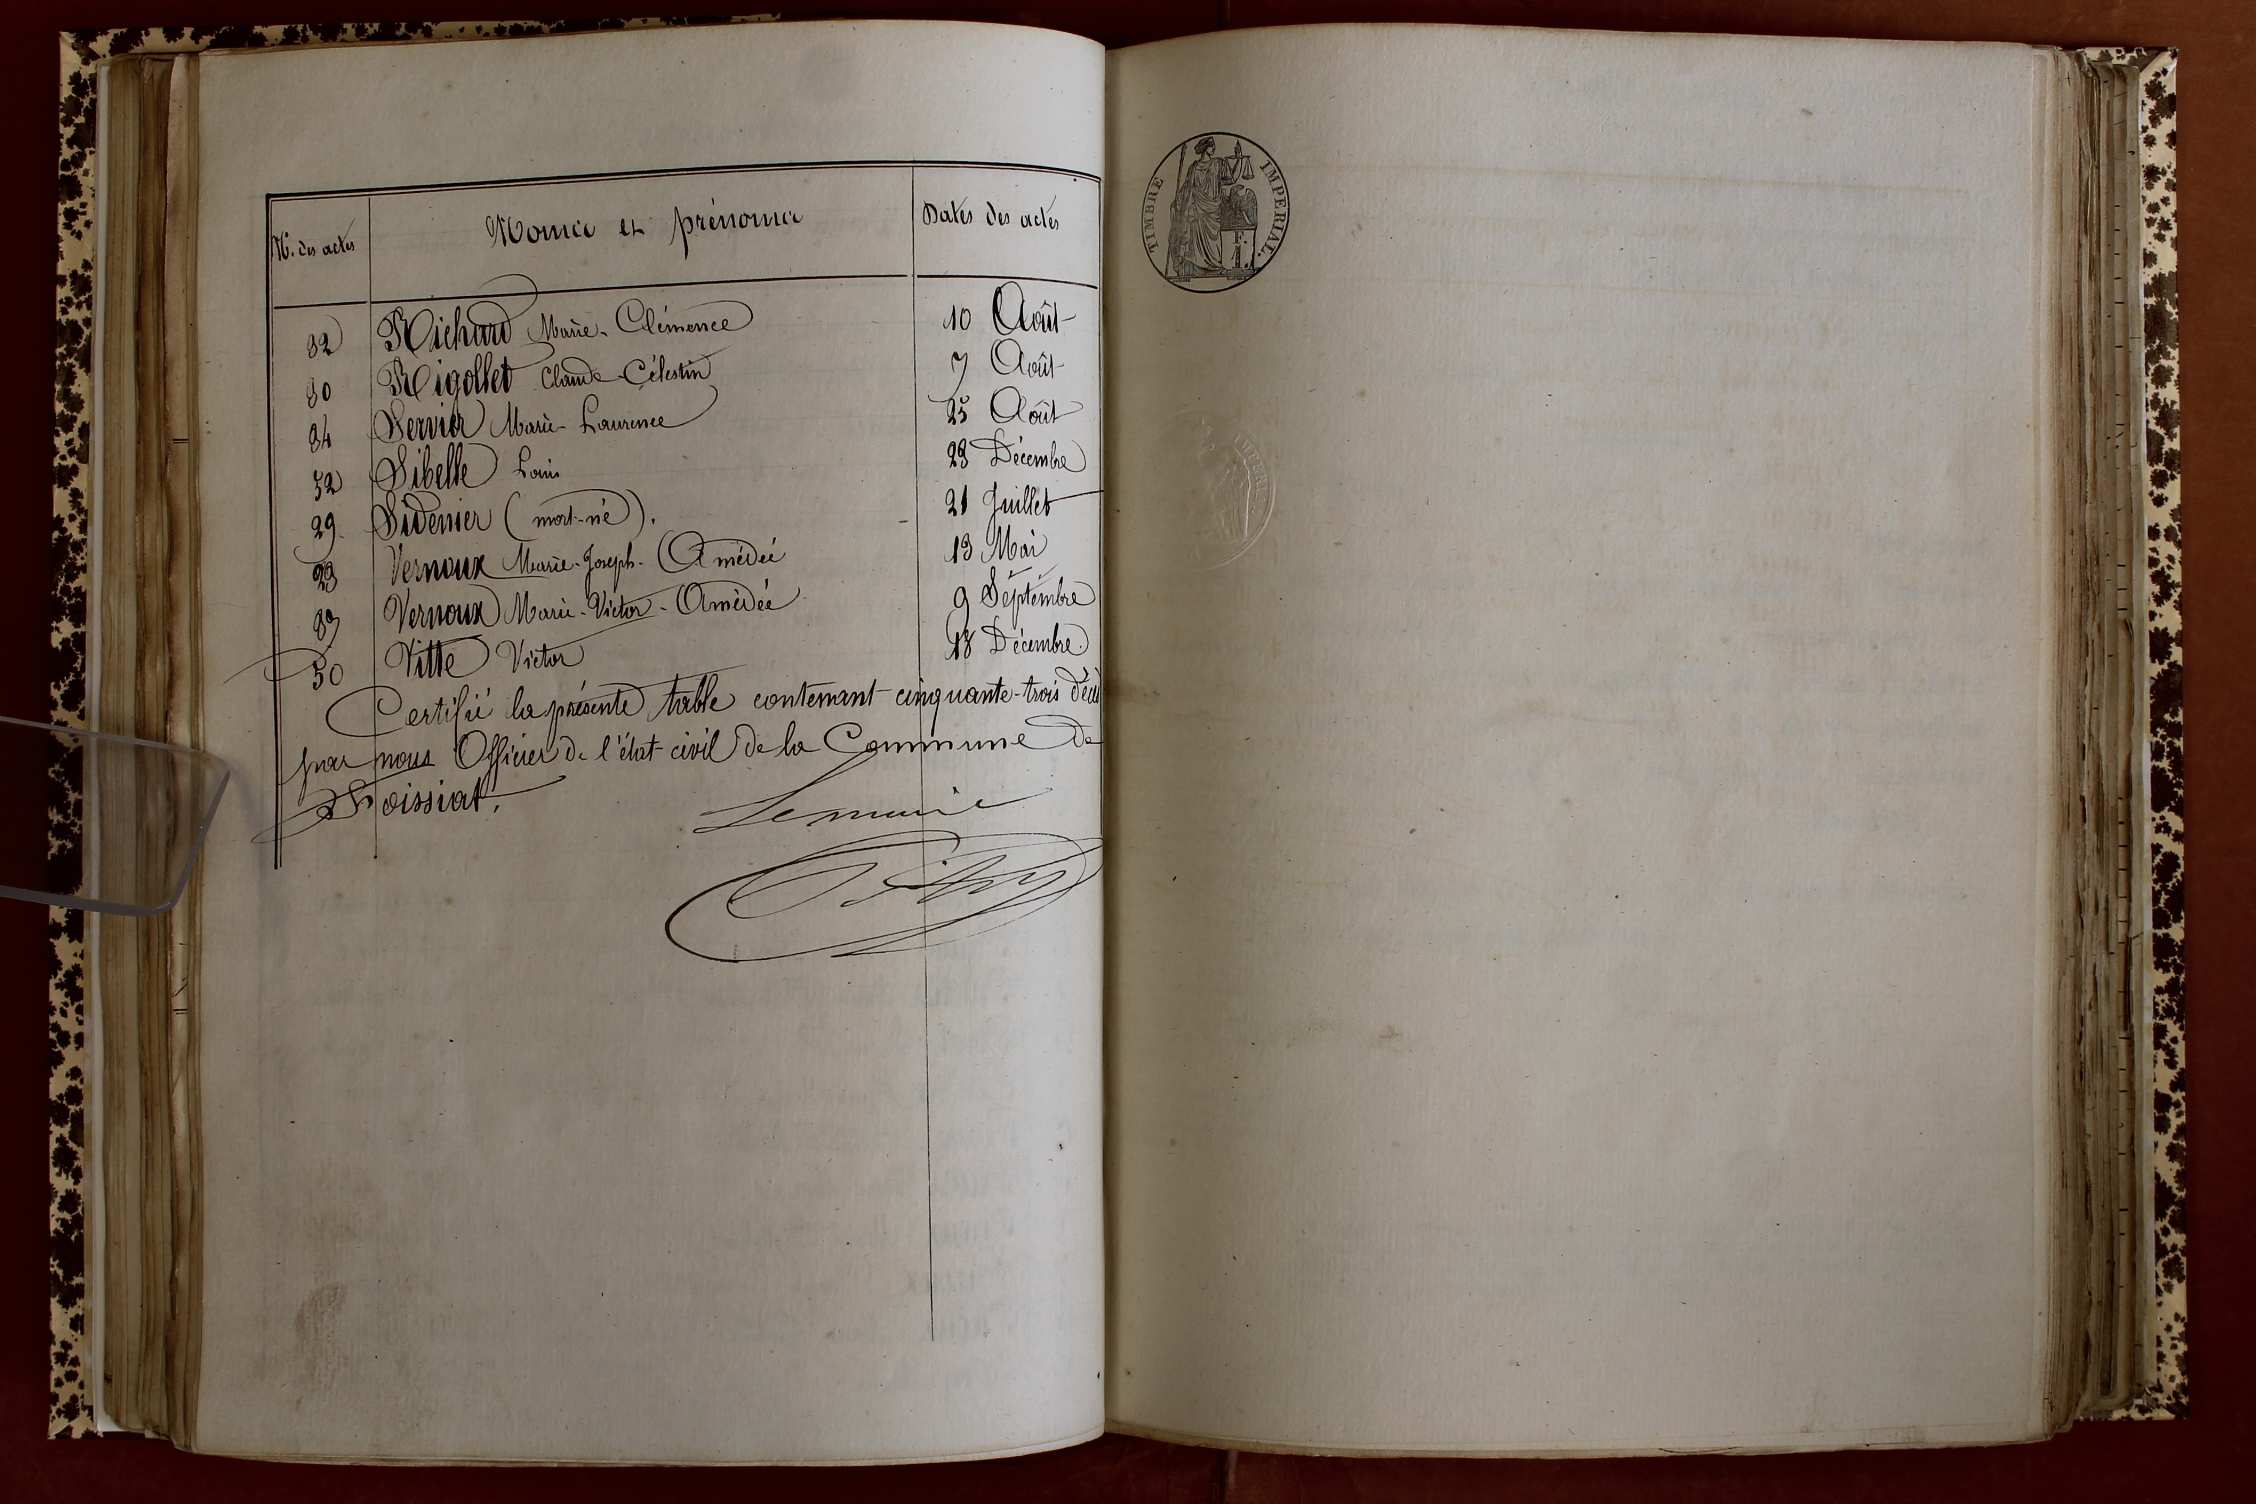 Nos. des actes Noms et prénoms Dates des actes
32 Richard Marie-Clémence 10 Août
30 Rigollet Claude-Célestin 7 Août
34 Servier Marie-Laurence 25 Août
52 Sibelle Louis 28 Décembre
29 Sidenier (mort-né). 21 Juillet
23 Vernoux Marie-Joseph-Amédée 13 Mai
37 Vernoux Marie-Victor-Amédée 9 Septembre
50 Vitte Victor 18 Décembre.
Certifié la présente table contenant cinquante-trois décès
par nous Officier de l'état civil de la Commune de
Foissiat.
Le maire
TIMBRE IMPERIAL.
F.
1.